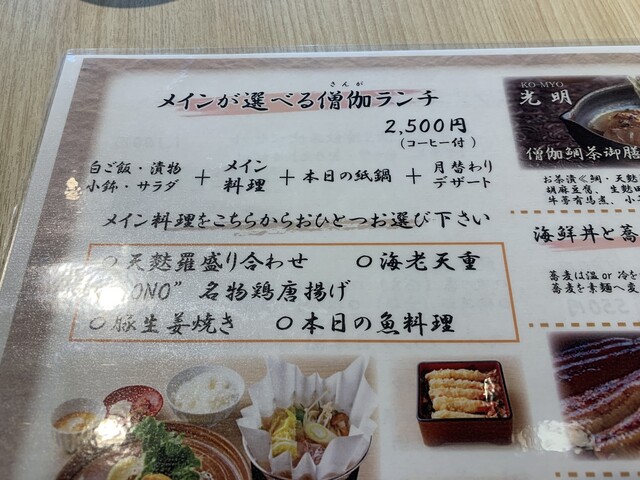 さんが
メインが選べる僧伽ランチ
2,500円
(コーヒー付)
白ご飯・漬物
小鉢・サラダ
+
メイン
料理
+
本日の紙鍋
+
月替わり
デザート
メイン料理をこちらからおひとつお選び下さい
○天麩羅盛り合わせ ○海老天重
ONO” 名物鶏唐揚げ
○豚生姜焼き ○本日の魚料理
KO-MYO
光明
僧伽鯛茶御膳
お茶漬<鯛・天麩
胡麻豆腐、生麩田
牛蒡有馬煮、小
海鮮丼と蕎
蕎麦は温 or 冷を
蕎麦を素麺へ変